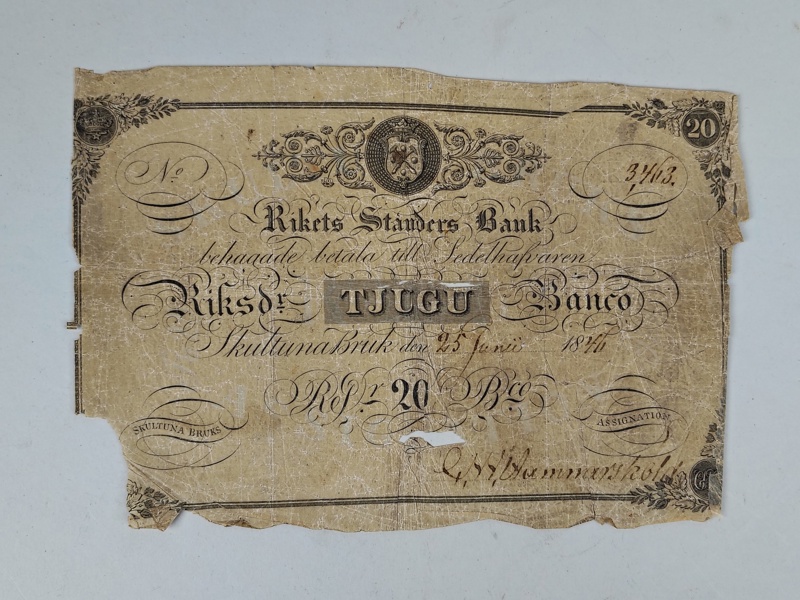 20
No 3,463.
Rikets Ständers Bank
behagade betala till Sedelhafvaren
Riksdr TJUGU Banco
Skultuna Bruk den 25 Juni 1846
RSr 20 Bco
SKULTUNA BRUKS ASSIGNATION
C, W, Hammarskold